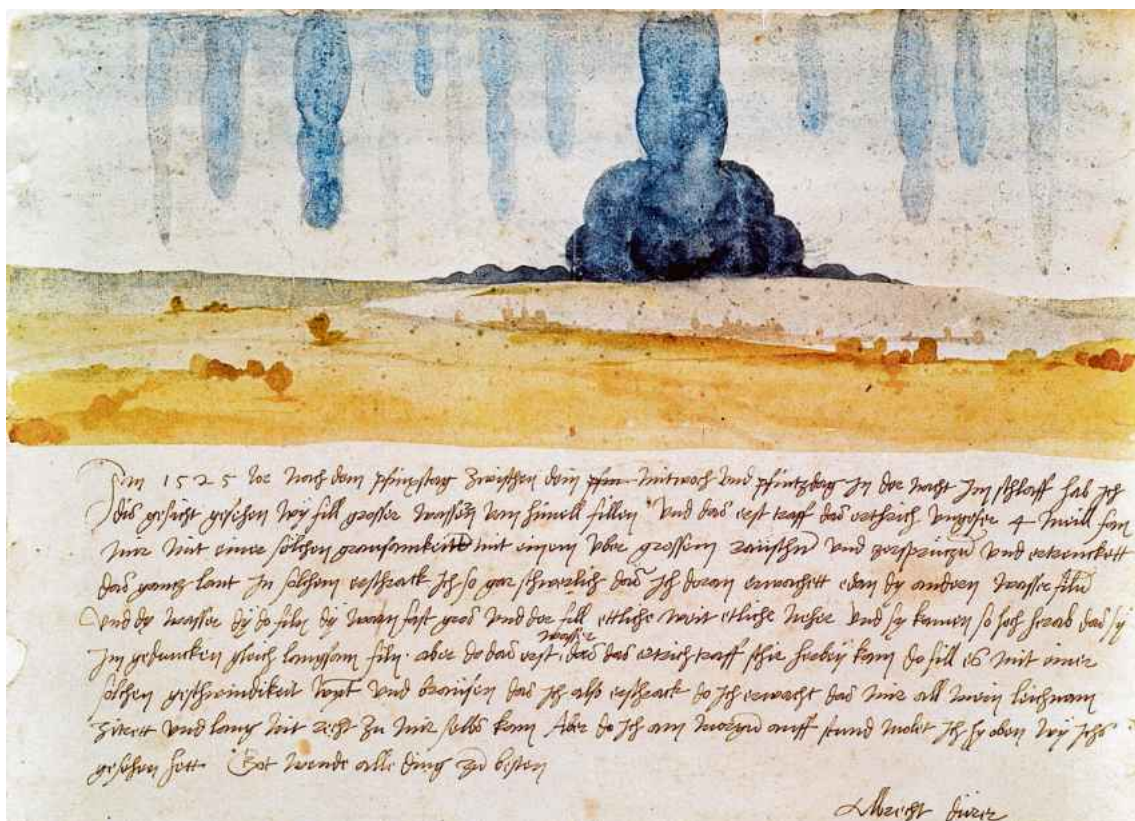 Im 1525 Jor nach dem pfinxstag zwischen dem pfin Mitwoch und pfintzdag in der nacht im schlaff hab ich
dis gesicht gesehen wy fill grosser wassern vom himell fillen Und das erst traff das erthrich ungefer 4 meill fan
mir mit einer solchen grausamkeitt mit einem uber grossem raüschn und zersprützn und ertrenckett
das gantz lant In solchem erschrack ich so gar schwerlich das ich doran erwachett edan dy andern wasser filn
Und dy wasser dy do filn dy warn fast gros und der fill ettliche weit etliche neher und sy kamen so hoch herab das sy
im gedancken gleich langsam filn. aber do das erst wasser das das ertrich traff schir herbey kam do fill es mit einer
solchen geschwindikeit wynt und braüsen das ich also erschrack do ich erwacht das mir all mein leichnam
zitrett und lang nit recht zu mir selbs kam Aber do ich am morgn auff stund molet ich hy oben wy ichs
gesehen hett Got wende alle ding zu besten
Albrecht dürer